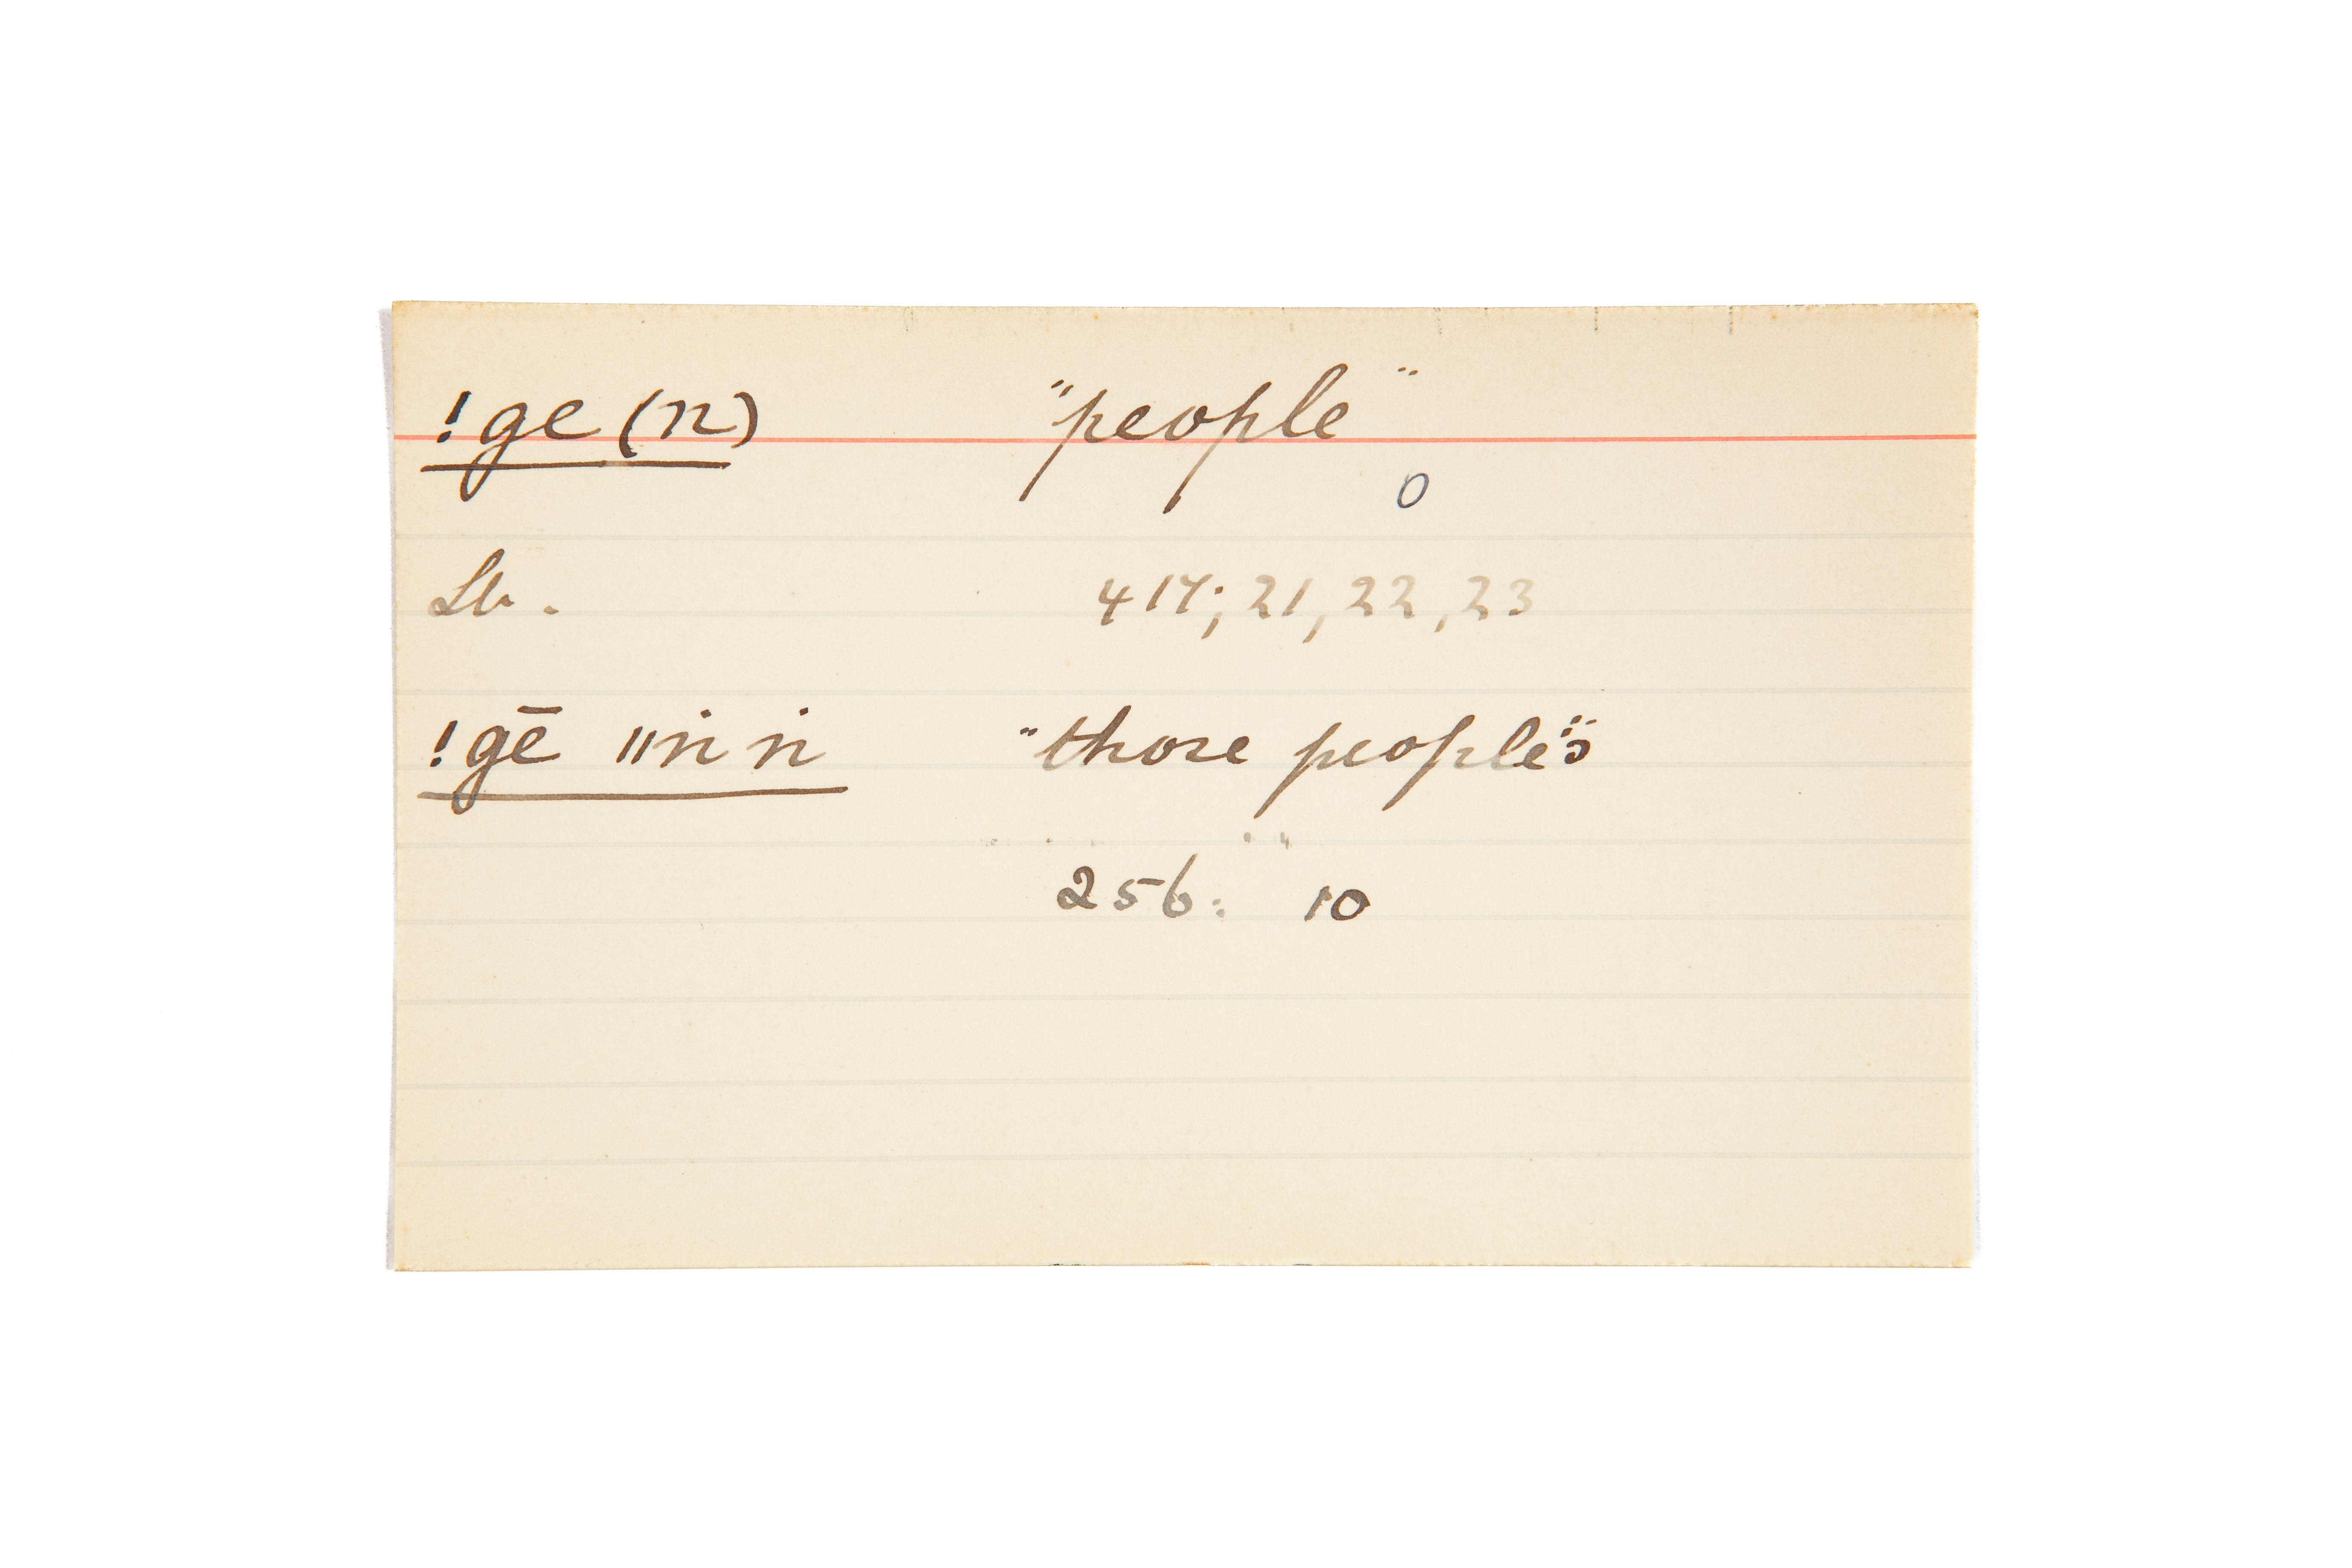 !ge (n) "people"
0
Lb. 417; 21, 22, 23
!gē ǁṅ ṅ "those people's"
256: 10